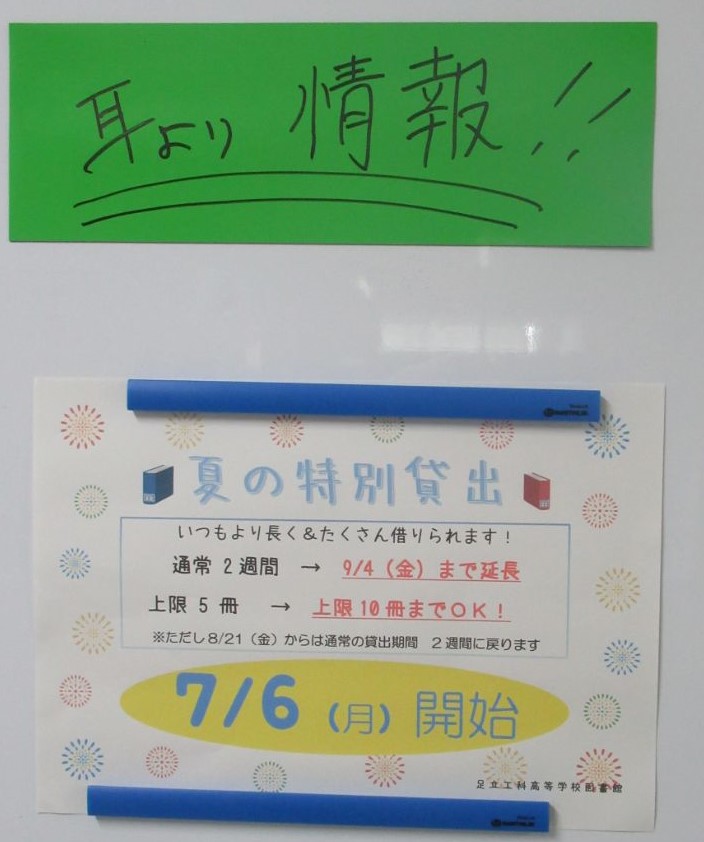 耳より 情報!!
夏の特別貸出
いつもより長く＆たくさん借りられます！
通常 2 週間 → 9/4（金）まで延長
上限 5 冊 → 上限 10 冊までＯＫ！
※ただし 8/21（金）からは通常の貸出期間 2 週間に戻ります
7/6（月）開始
足立工科高等学校図書館